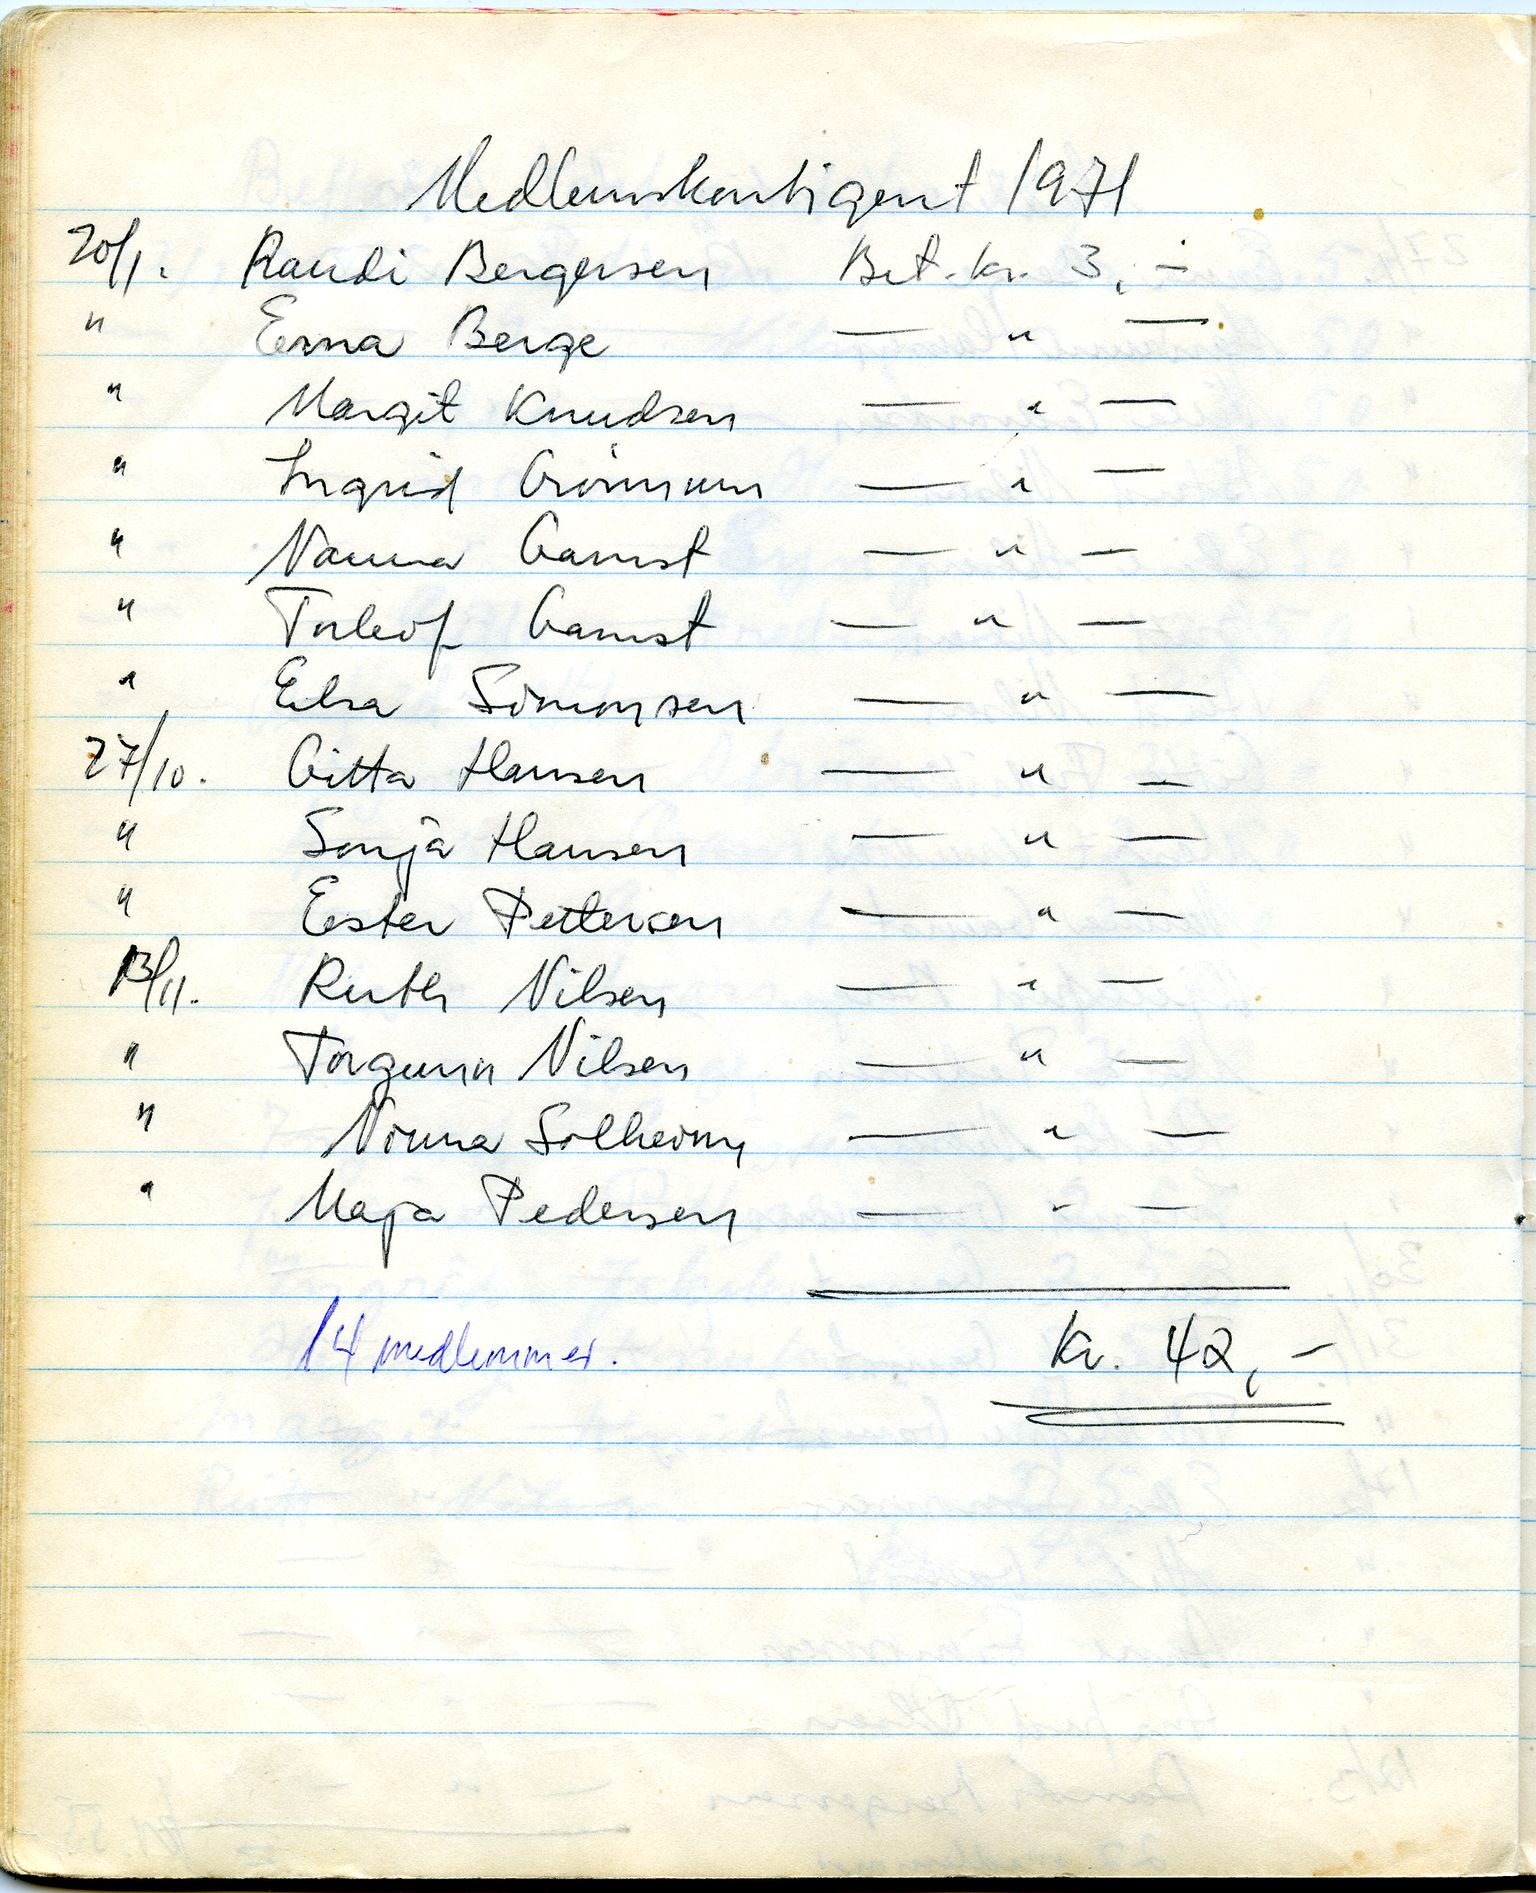 Medlemskontigent 1971
20/1. Randi Bergersen Bet. kr. 3,-
" Erna Berge — " —
" Margit Knudsen — " —
" Ingrid Grönmum — " —
" Nanna Gamst — " —
" Torleif Gamst — " —
" Elsa Simonsen — " —
27/10. Gitta Hansen — " —
" Sonja Hansen — " —
" Ester Pettersen — " —
13/11. Ruth Nilsen — " —
" Torgunn Nilsen — " —
" Nonna Solheim — " —
" Maja Pedersen — " —
14 medlemmer. Kr. 42,-